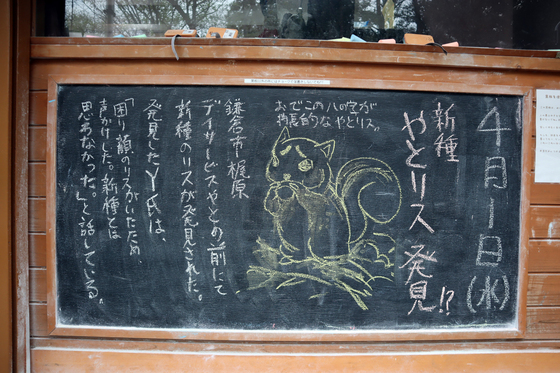 4月1日(水)
新種
やとリス 発見!?
おでこの八の字が
特長的なやとリス。
鎌倉市梶原
デイサービスやとの前にて
新種のリスが発見された。
発見したY氏は、
「困り顔のリスがいたため、
声かけした。新種とは
思わなかった。」と話している。